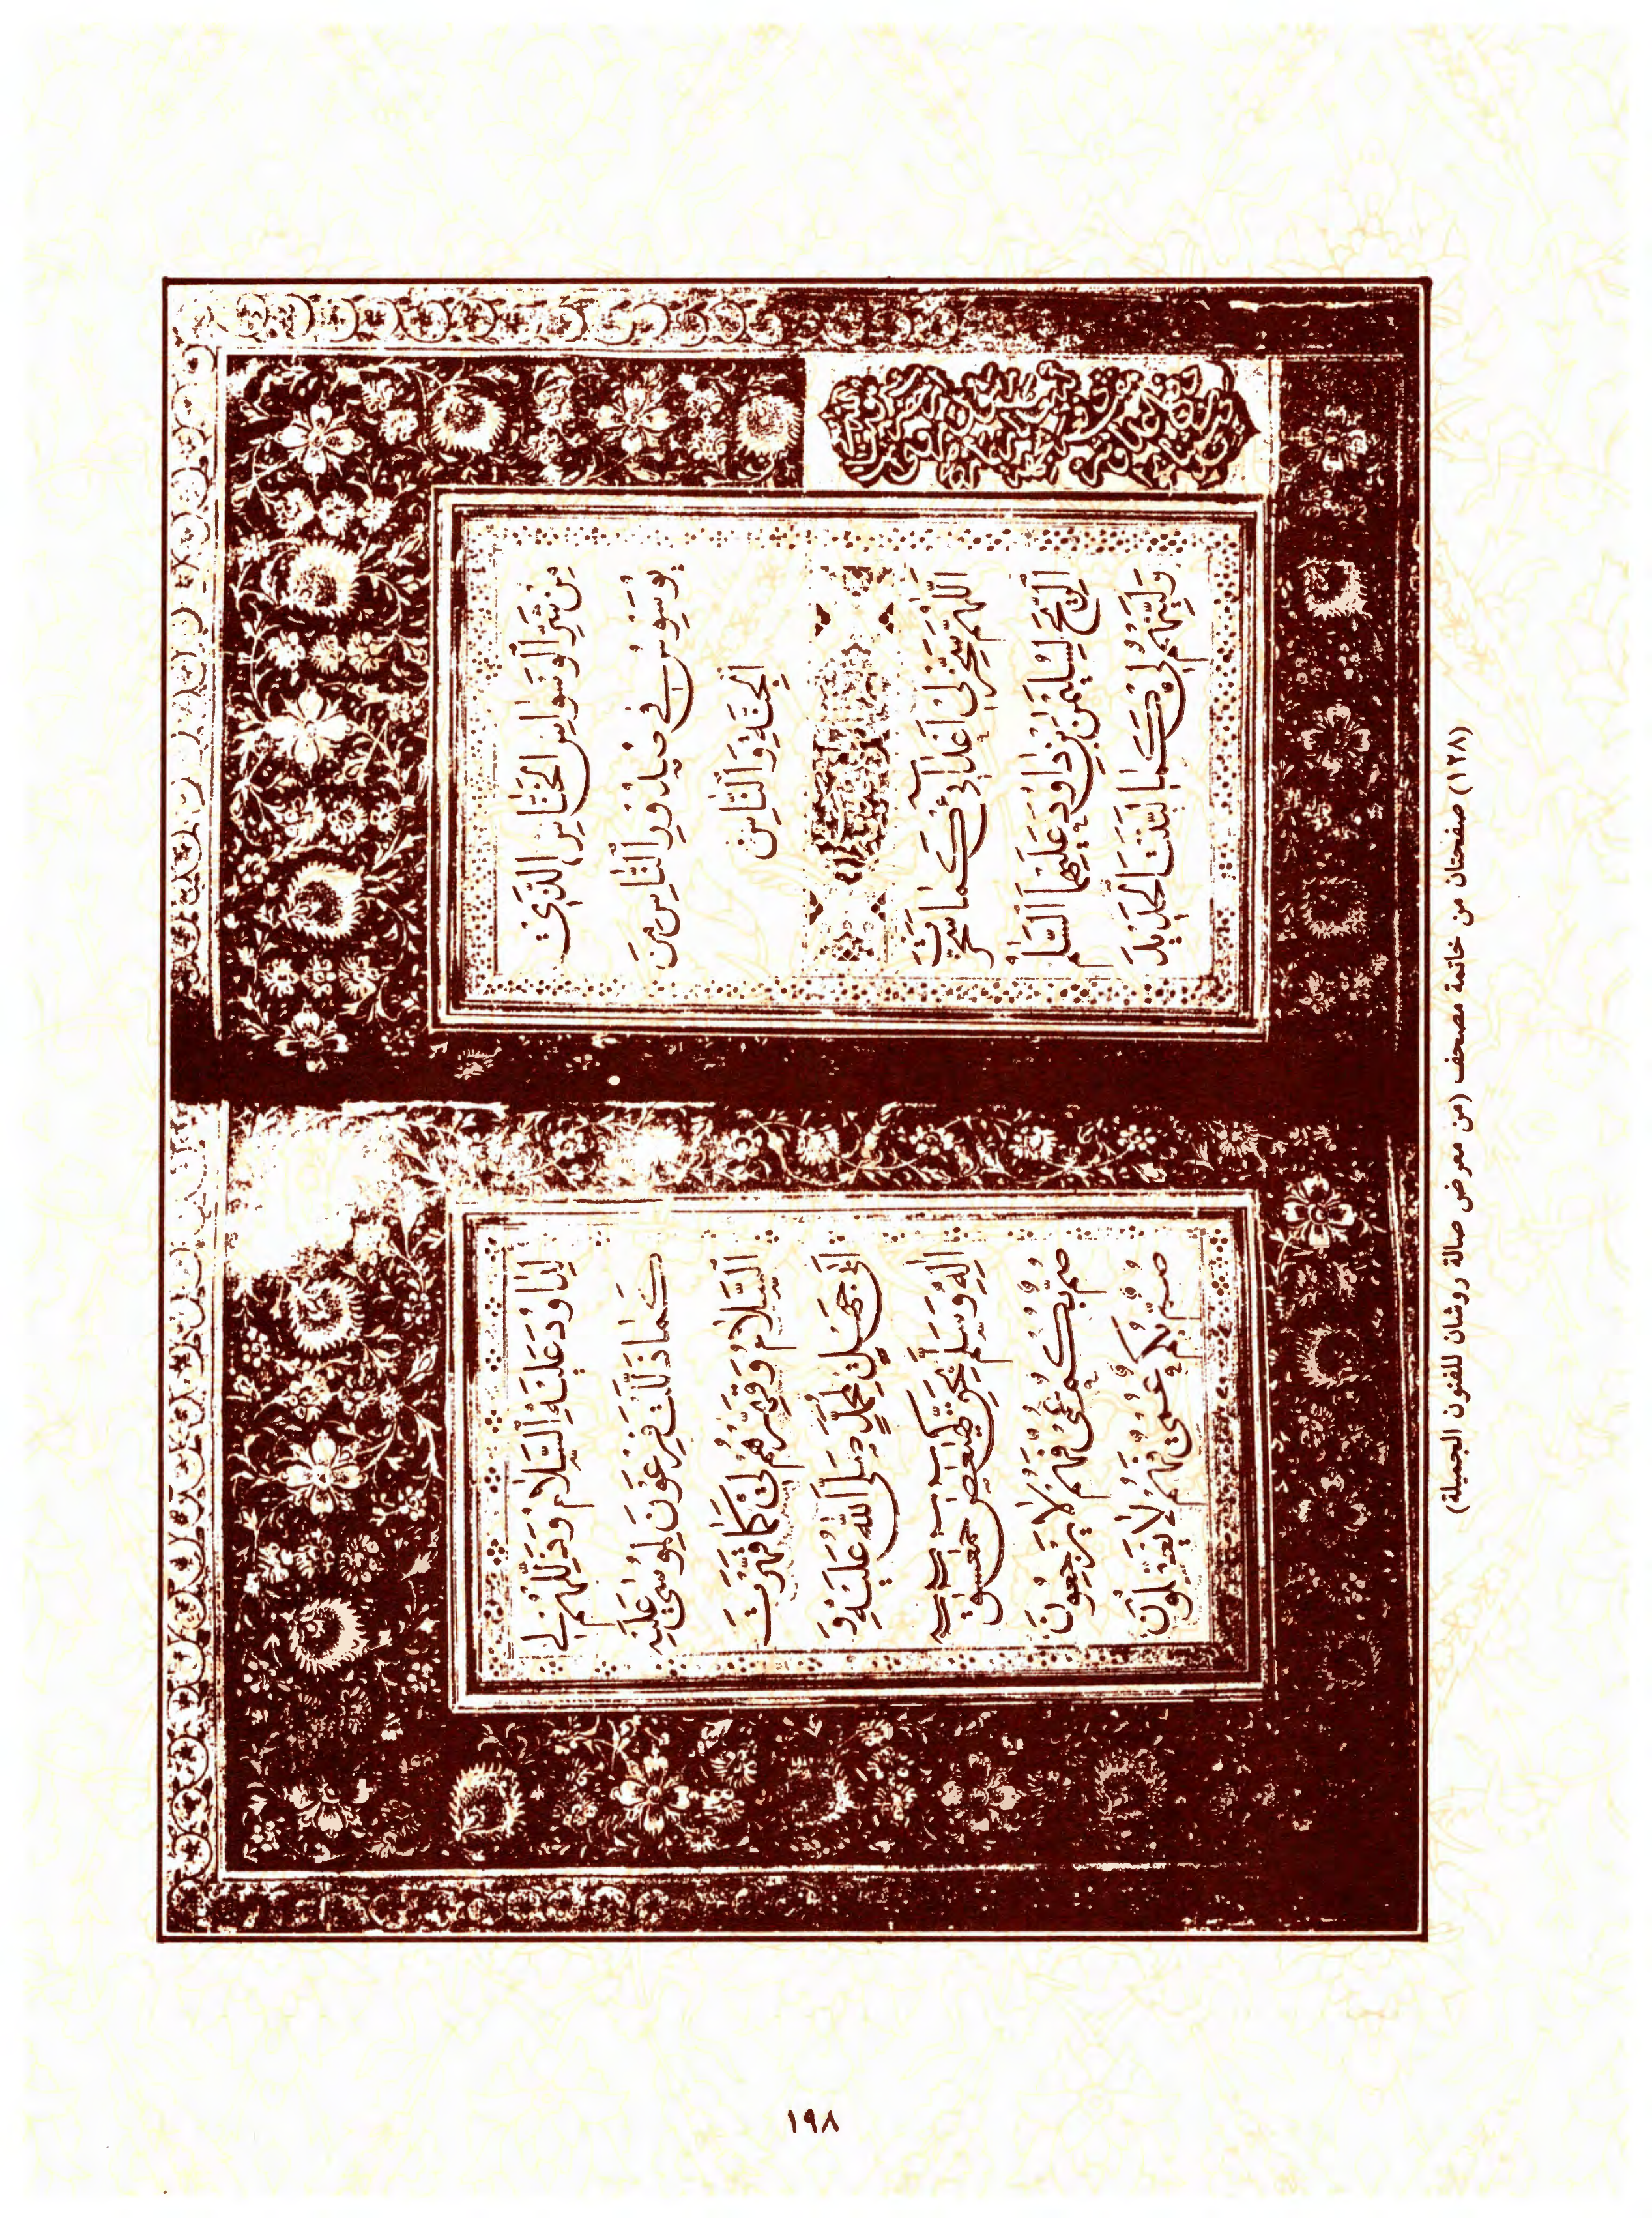 مِنْ شَرِّ الْوَسْوَاسِ الْخَنَّاسِ الَّذِي
يُوَسْوِسُ فِي صُدُورِ النَّاسِ مِنَ
الْجِنَّةِ وَالنَّاسِ
اللّٰهُمَّ سَخِّرْ لِي أَعْدَائِي كَمَا سَخَّرْتَ
الرِّيحَ لِسُلَيْمٰنَ بْنِ دَاوُدَ عَلَيْهِمَا السَّلَامُ
وَلَيِّنْهُمْ لِي كَمَا لَيَّنْتَ الْحَدِيدَ
لِدَاوُدَ عَلَيْهِ السَّلَامُ وَذَلِّلْهُمْ لِي
كَمَا ذَلَّلْتَ فِرْعَوْنَ لِمُوسٰى عَلَيْهِ
السَّلَامُ وَقَهِّرْهُمْ لِي كَمَا قَهَّرْتَ
أَبَا جَهْلٍ لِمُحَمَّدٍ صَلَّى اللهُ عَلَيْهِ وَ
اٰلِهِ وَسَلَّمَ بِحَقِّ كٓهٰيٰعٓصٓ حٰمٓعٓسٓقٓ
صُمٌّ بُكْمٌ عُمْيٌ فَهُمْ لَا يَرْجِعُونَ
صُمٌّ بُكْمٌ عُمْيٌ فَهُمْ لَا يَعْقِلُونَ
(١٢٨) صفحتان من خاتمة مصحف (من معرض صالة روشان للفنون الجميلة)
١٩٨